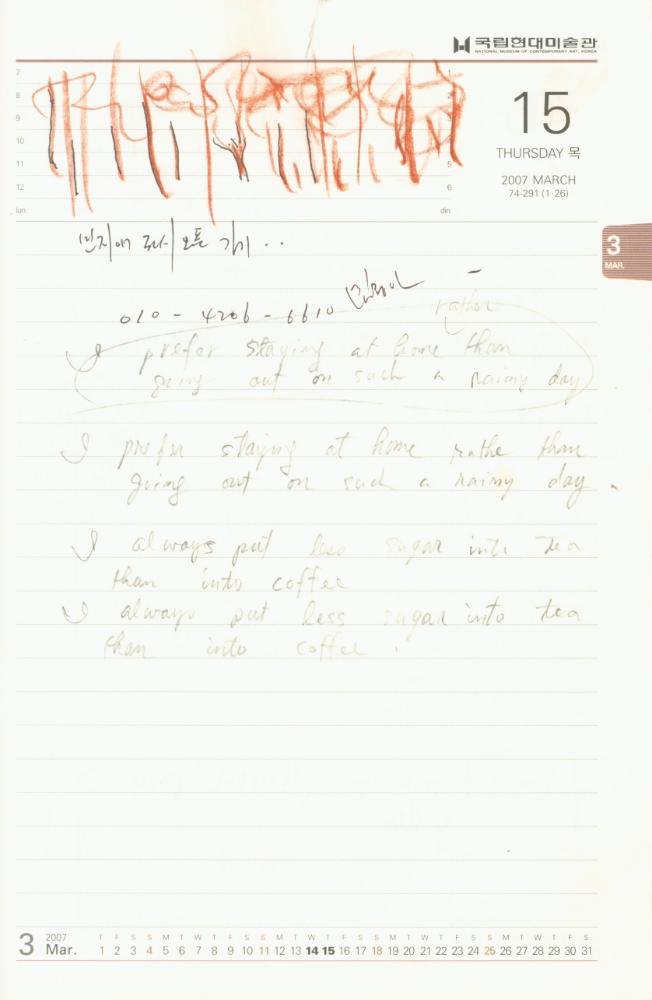 국립현대미술관
NATIONAL MUSEUM OF CONTEMPORARY ART, KOREA
7
8
9
10
11
12
lun.
5
6
din.
15
THURSDAY 목
2007 MARCH
74-291 (1-26)
3
MAR.
가기 . .
010 - 4206 - 6610
rather
I prefer staying at home than
going out on such a rainy day
I prefer staying at home rathe than
going out on such a rainy day .
I always put less sugar into tea
than into coffee
I always put less sugar into tea
than into coffee .
3 2007 Mar.
T F S S M T W T F S S M T W T F S S M T W T F S S M T W T F S
1 2 3 4 5 6 7 8 9 10 11 12 13 14 15 16 17 18 19 20 21 22 23 24 25 26 27 28 29 30 31